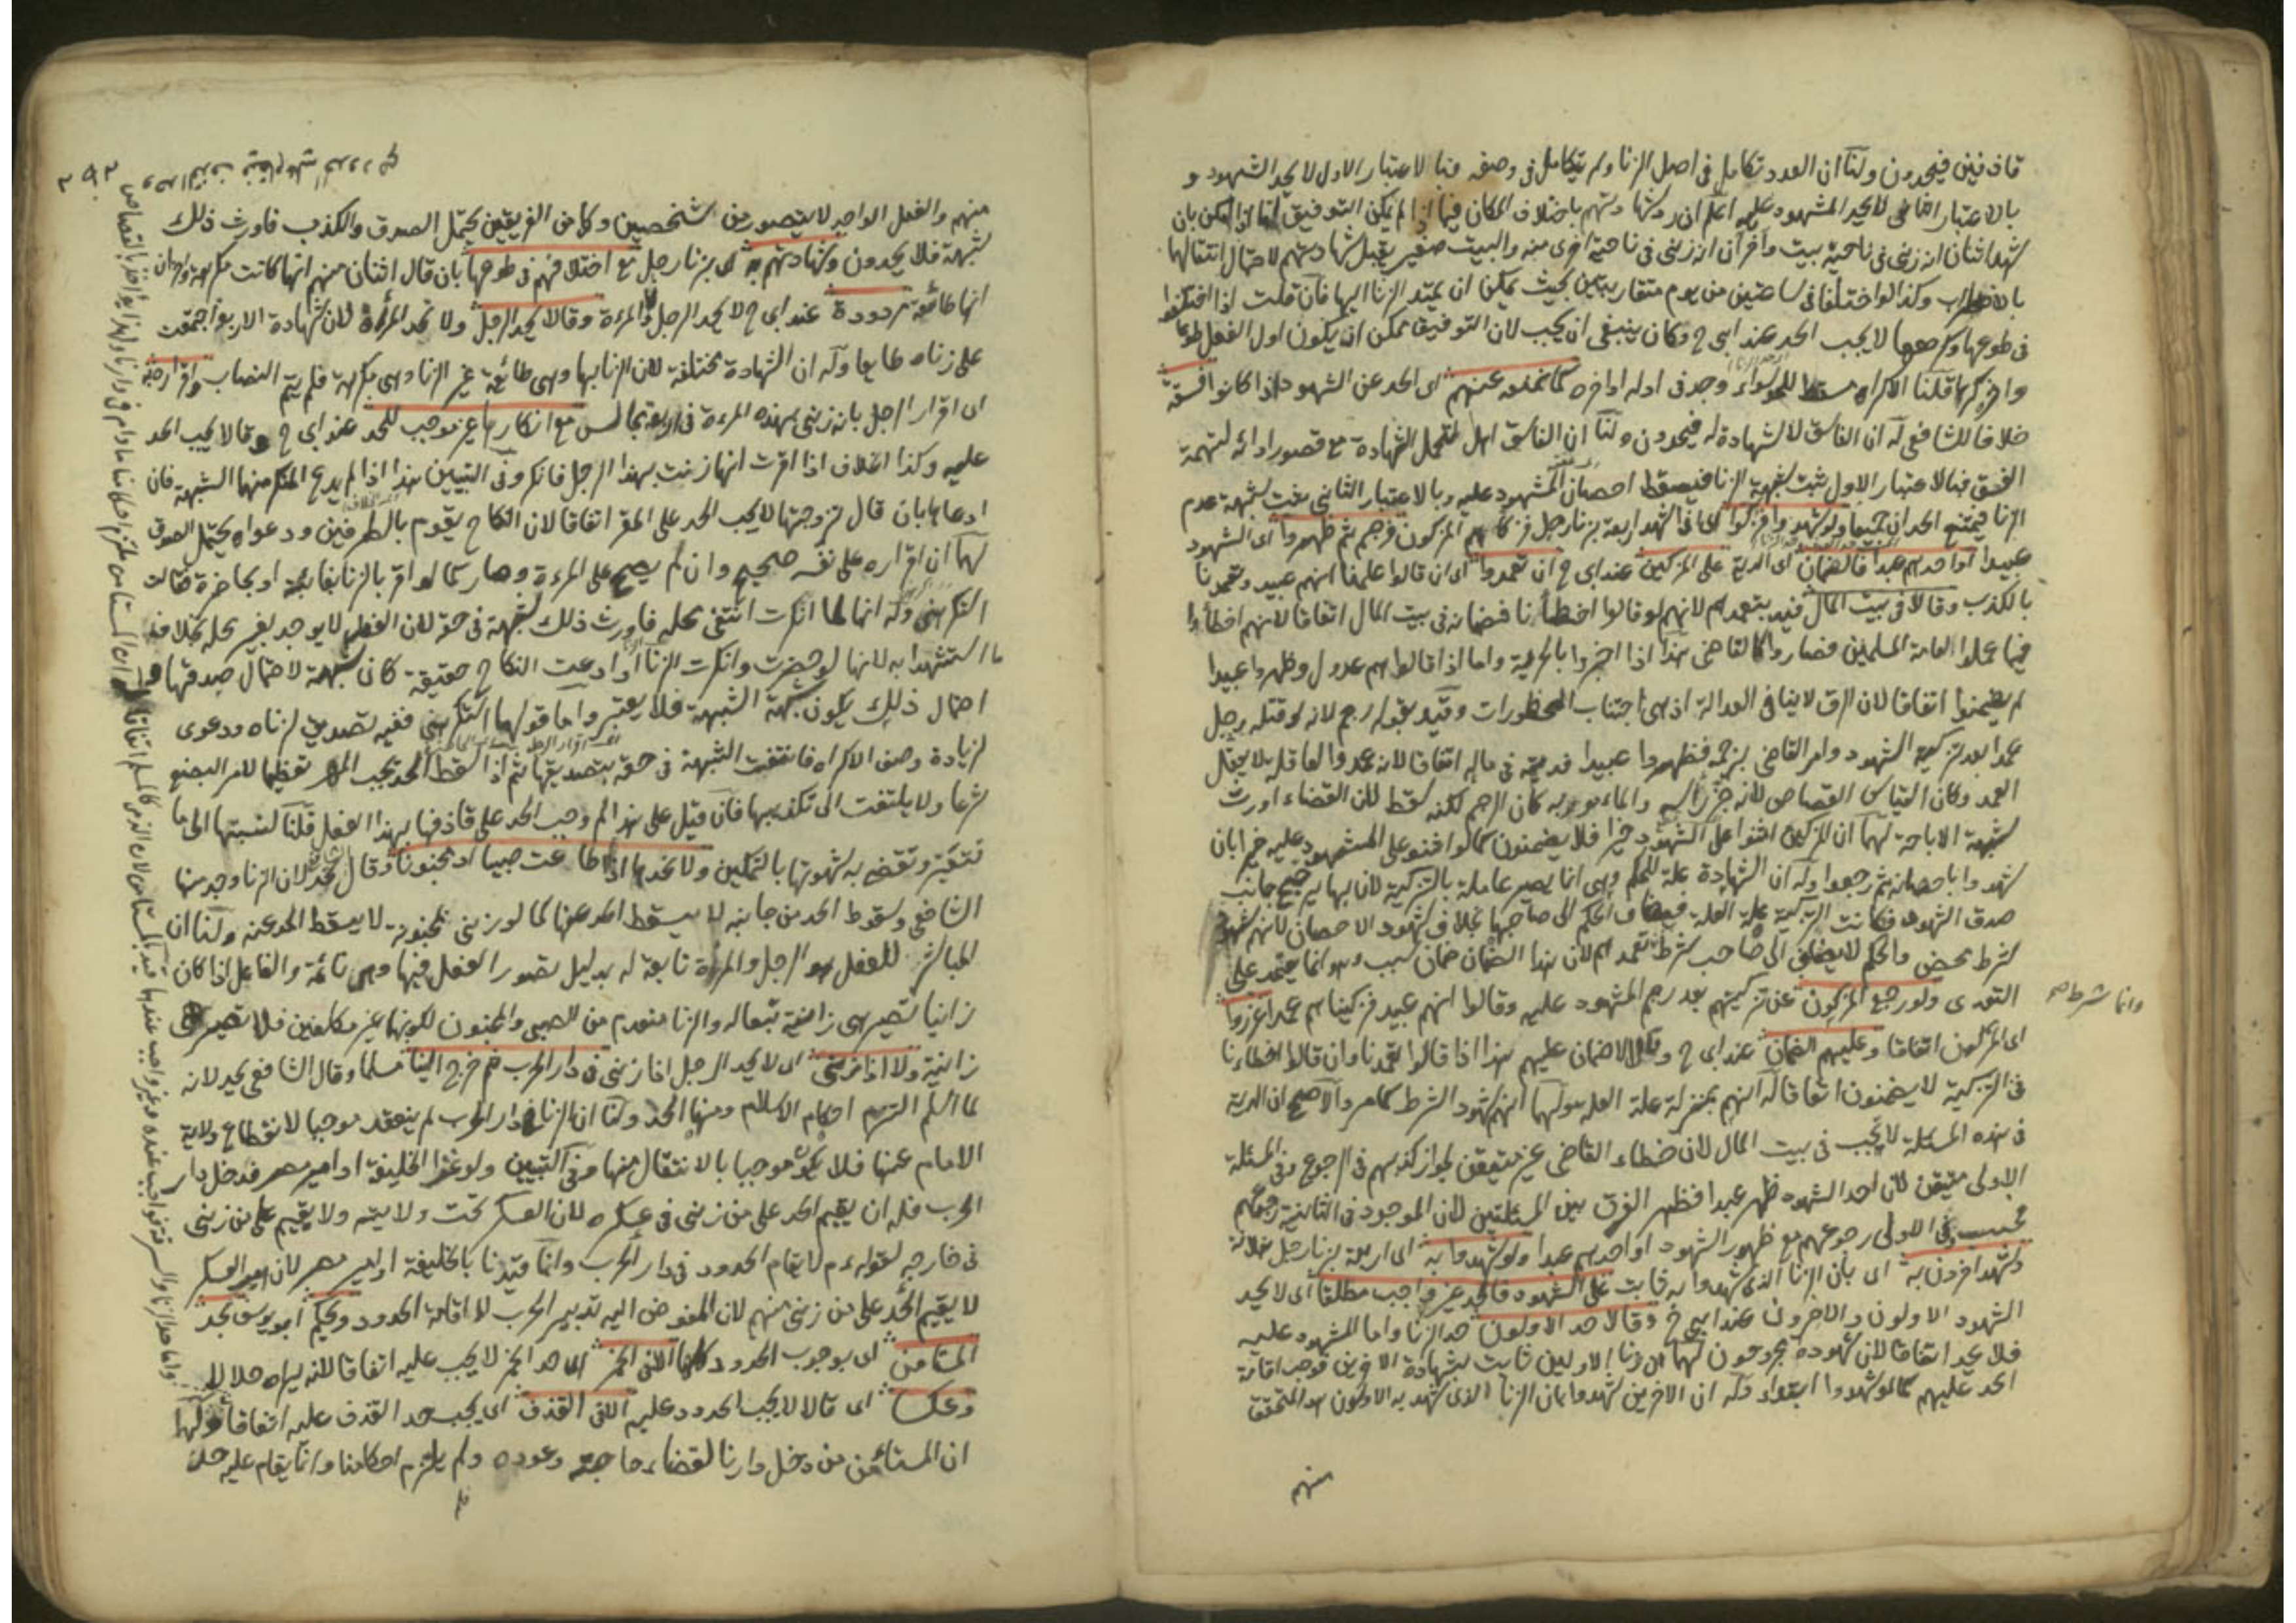 قاذفين فيحدون ولنا ان العدد تكامل فى اصل الزنا ولم يتكامل فى وصفه فبالاعتبار الاول لا يحد الشهود و
بالاعتبار الثانى لا يحد المشهود عليه اعلم ان رد شهادتهم باختلاف المكان فيما اذا لم يكن التوفيق اما اذا امكن بان
شهد اثنان انه زنى فى ناحية بيت وآخران انه زنى فى ناحية اخرى منه والبيت صغير يقبل شهادتهم لاحتمال انتقالها
بالاضطراب وكذا لو اختلفا فى ساعتين من يوم متقاربتين بحيث يمكن ان يمتد الزنا اليها فان قلت اذا اختلفوا
فى طوعها وكرهها لا يجب الحد عند ابى ح وكان ينبغى ان يجب لان التوفيق ممكن ان يكون اول الفعل طوعا
وآخره كرها قلنا الاكراه مسقط للحد سواء وجد فى اوله او آخره كما نمنعه عنهم اى الحد عن الشهود اذا كانوا فسقة
خلافا للشافعى له ان الفاسق لا شهادة له فيحدون ولنا ان الفاسق اهل لتحمل الشهادة مع قصور ادائه لتهمة
الفسق فبالاعتبار الاول ثبت شبهة الزنا فيسقط احصان المشهود عليه وبالاعتبار الثانى ثبت شبهة عدم
الزنا فيمتنع الحدان جميعا ولو شهدوا فزكوا اى اذا شهد اربعة بزنا رجل فزكاهم المزكون فرجم ثم ظهروا اى الشهود
عبيدا او احدهم عبدا فالضمان اى الدية على المزكين عند ابى ح ان تعمدوا اى ان قالوا علمنا انهم عبيد وتعمدنا
بالكذب وقالا فى بيت المال قيد بتعمدهم لانهم لو قالوا اخطأنا فضمانه فى بيت المال اتفاقا لانهم اخطأوا
فيما عملوا لعامة المسلمين فصاروا كالقاضى هذا اذا اخبروا بالحرية واما اذا قالوا هم عدول وظهروا عبيدا
لم يضمنوا اتفاقا لان الرق لا ينافى العدالة اذ هى اجتناب المحظورات وقيد بقوله رجم لانه لو قتله رجل
عمدا بعد تزكية الشهود وامر القاضى برجمه فظهروا عبيدا فديته فى ماله اتفاقا لانه عمد والعاقلة لا يعقل
العمد وكان القياس القصاص لانه حز رأسه والمأمور به كان الرجم لكنه سقط لان القضاء اورث
شبهة الاباحة لهما ان المزكين اثنوا على الشهود خيرا فلا يضمنون كما لو اثنوا على المشهود عليه خيرا بان
شهدوا باحصانه ثم رجعوا وله ان الشهادة علة للحكم وهى انما يصير عاملة بالتزكية لان بها يرجح جانب
صدق الشهود فكانت التزكية علة العلة فيضاف الحكم الى صاحبها بخلاف شهود الاحصان لانهم شهود
شرط محض والحكم لا يضاف الى صاحب شرط تعمدهم لان هذا الضمان ضمان سبب وهو انما يعتمد على
التعدى ولو رجع المزكون عن تزكيتهم بعد رجم المشهود عليه وقالوا انهم عبيد فزكيناهم عمدا عزروا
اى المزكون اتفاقا وعليهم الضمان عند ابى ح وقالا لا ضمان عليهم هذا اذا قالوا تعمدنا وان قالوا اخطاءنا
فى التزكية لا يضمنون اتفاقا له انهم بمنزلة علة العلة ولهما انهم شهود الشرط كما مر والاصح ان الدية
فى هذه المسئلة لا يجب فى بيت المال لان خطاء القاضى غير متيقن لجواز كذبهم فى الرجوع وفى المسئلة
الاولى متيقن لان احد الشهود ظهر عبدا فظهر الفرق بين المسئلتين لان الموجود فى الثانية رجوعهم
فحسب وفى الاولى رجوعهم مع ظهور الشهود او احدهم عبدا ولو شهدوا به اى اربعة بزنا رجل
وشهد آخرون به اى بان الزنا الذى شهدوا به ثابت على الشهود فالحد غير واجب مطلقا اى لا يحد
الشهود الاولون والآخرون عند ابى ح وقالا حد الاولون حد الزنا واما المشهود عليه
فلا يحد اتفاقا لان شهوده مجروحون لهما ان زنا الاولين ثابت بشهادة الآخرين فوجب اقامة
الحد عليهم كما لو شهدوا ابتداء وله ان الآخرين شهدوا بان الزنا الذى شهد به الاولون هو المتحقق
منهم
وانما شرط
منهم والفعل الواحد لا يتصور من شخصين وكل من الفريقين يحتمل الصدق والكذب فاورث ذلك
شبهة فلا يحدون وشهادتهم به اى بزنا رجل مع اختلافهم فى طوعها بان قال اثنان منهم انها كانت مكرهة وآخران
انها طائعة مردودة عند ابى ح لا يحد الرجل والمرءة وقالا يحد الرجل ولا تحد المرأة لان شهادة الاربع اجتمعت
على زناه طايعا وله ان الشهادة مختلفة لان الزنا بها وهى طائعة غير الزنا وهى مكرهة فلم يتم النصاب واقراره
اى اقرار الرجل بانه زنى بهذه المرءة فى اربعة مجالس مع انكارها غير موجب للحد عند ابى ح وقالا يجب الحد
عليه وكذا الخلاف اذا اقرت انها زنت بهذا الرجل فانكر وفى التبيين هذا اذا لم يدع المنكر منهما الشبهة فان
ادعاها بان قال تزوجتها لا يجب الحد على المقر اتفاقا لان النكاح يقوم بالطرفين ودعواه يحتمل الصدق
لهما ان اقراره على نفسه صحيح وان لم يصح على المرءة وصار كما لو اقر بالزنا بغائبة او بحاضرة فقالت
اكرهنى وله انها لما انكرت انتفى محله فاورث ذلك شبهة فى حقه لان الفعل لا يوجد بغير محله بخلاف
ما استشهدا به لانها لو حضرت وانكرت الزنا او ادعت النكاح حقيقة كان شبهة لاحتمال صدقها و
احتمال ذلك يكون شبهة الشبهة فلا يعتبر واما قولها اكرهنى ففيه تصديق لزناه ودعوى
لزيادة وصف الاكراه فانتفت الشبهة فى حقه بتصديقها ثم اذا سقط الحد يجب المهر تعظيما لامر البضع
شرعا ولا يلتفت الى تكذيبها فان قيل على هذا لم وجب الحد على قاذفها بهذا الفعل قلنا لنسبتها الى ما
تتعير وتقضى به شهوتها بالتمكين ولا نحدها اذا طاوعت صبيا او مجنونا وقال محمد لان الزنا وجد منها
الشافعى وسقوط الحد من جانبه لا يسقط الحد عنها كما لو زنى بمجنونة لا يسقط الحد عنه ولنا ان
المباشر للفعل هو الرجل والمرءة تابعة له بدليل تصور الفعل فيها وهى نائمة والفاعل اذا كان
زانيا تصير هى زانية تبعا له والزنا منعدم من الصبى والمجنون لكونهما غير مكلفين فلا تصير هى
زانية ولا اذا زنى اى لا يحد الرجل اذا زنى فى دار الحرب ثم خرج الينا مسلما وقال الشافعى يحد لانه
لما اسلم التزم احكام الاسلام ومنها الحد ولنا ان الزنا فى دار الحرب لم ينعقد موجبا لانقطاع ولاية
الامام عنها فلا يكون موجبا بالانتقال منها وفى التبيين ولو غزا الخليفة او امير مصر فدخل دار
الحرب فله ان يقيم الحد على من زنى فى عسكره لان العسكر تحت ولايته ولا يقيم على من زنى
فى خارجه لقوله ءم لا يقام الحدود فى دار الحرب وانما قيدنا بالخليفة او امير مصر لان امير العسكر
لا يقيم الحد على من زنى منهم لان المفوض اليه تدبير الحرب لا اقامة الحدود ويحكم ابو يوسف بحد
المستأمن اى بوجوب الحدود كلها الا فى الخمر اى حد الخمر لا يجب عليه اتفاقا لانه يراه حلالا
وعكسا اى قالا لا يجب الحدود عليه الا فى القذف اى يجب حد القذف عليه اتفاقا لهما
ان المستأمن من دخل دارنا لقضاء حاجته وعوده ولم يلتزم احكامنا وانما يقام عليه حد